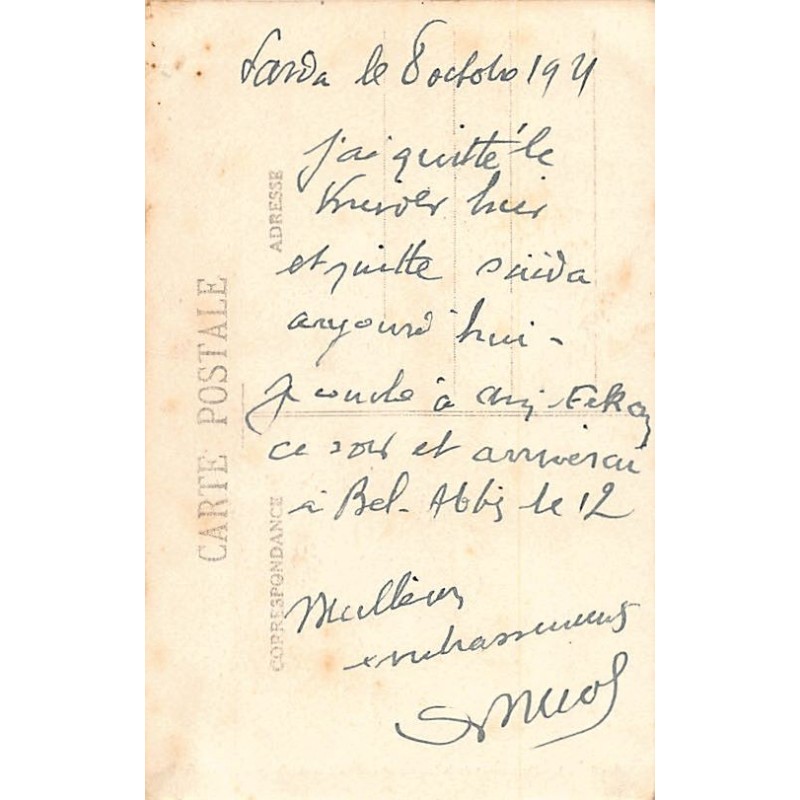 Saïda le 8 octobre 1921
j'ai quitté le
Kreider hier
et quitte saïda
aujourd'hui -
Je couche à Ain-Fekan
ce soir et arriverai
à Bel-Abbès le 12
Meilleurs
embrassements
CARTE POSTALE
ADRESSE
CORRESPONDANCE